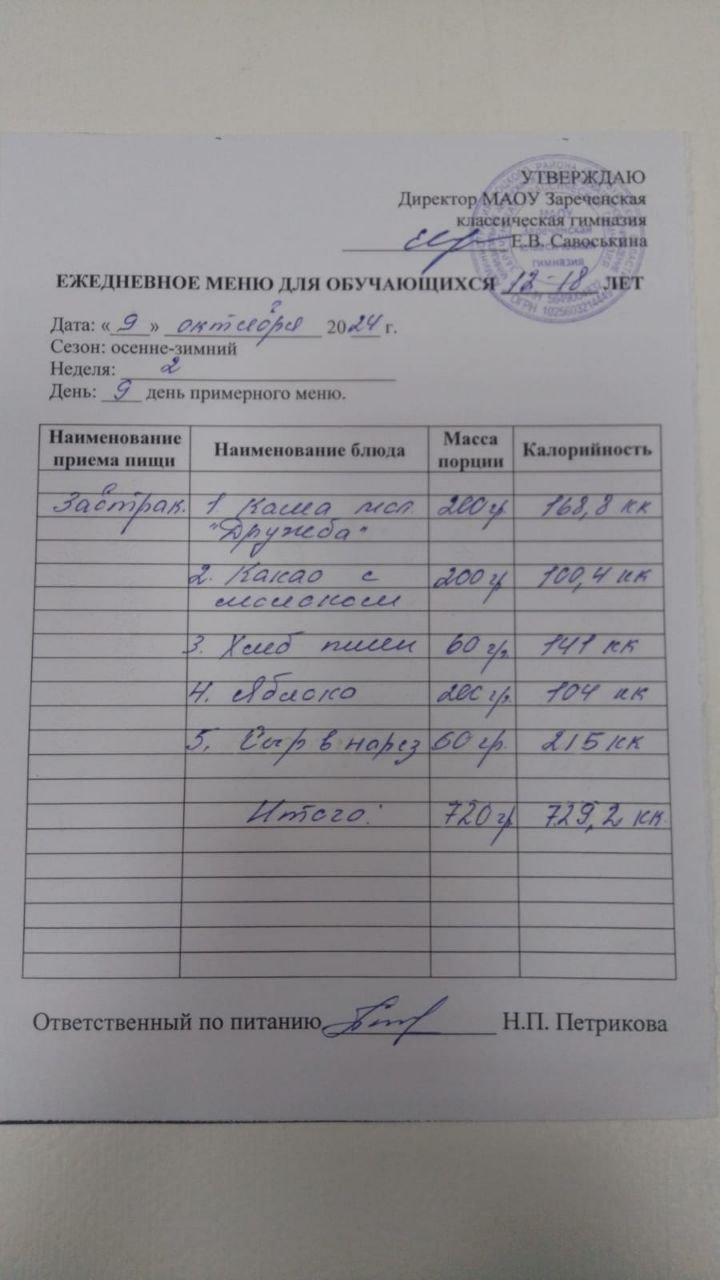 УТВЕРЖДАЮ
Директор МАОУ Зареченская
классическая гимназия
Е.В. Савоськина
ЕЖЕДНЕВНОЕ МЕНЮ ДЛЯ ОБУЧАЮЩИХСЯ 12-18 ЛЕТ
Дата: «9» октября 2024 г.
Сезон: осенне-зимний
Неделя: 2
День: 9 день примерного меню.
Наименование приема пищи Наименование блюда Масса порции Калорийность
Завтрак. 1. Каша мол. 200 гр 168,8 кк
"Дружба"
2. Какао с 200 гр 100,4 кк
молоком
3. Хлеб пшен 60 гр. 141 кк
4. Яблоко 200 гр. 104 кк
5. Сыр в нарез 60 гр. 215 кк
Итого: 720 гр 729,2 кк.
Ответственный по питанию Н.П. Петрикова